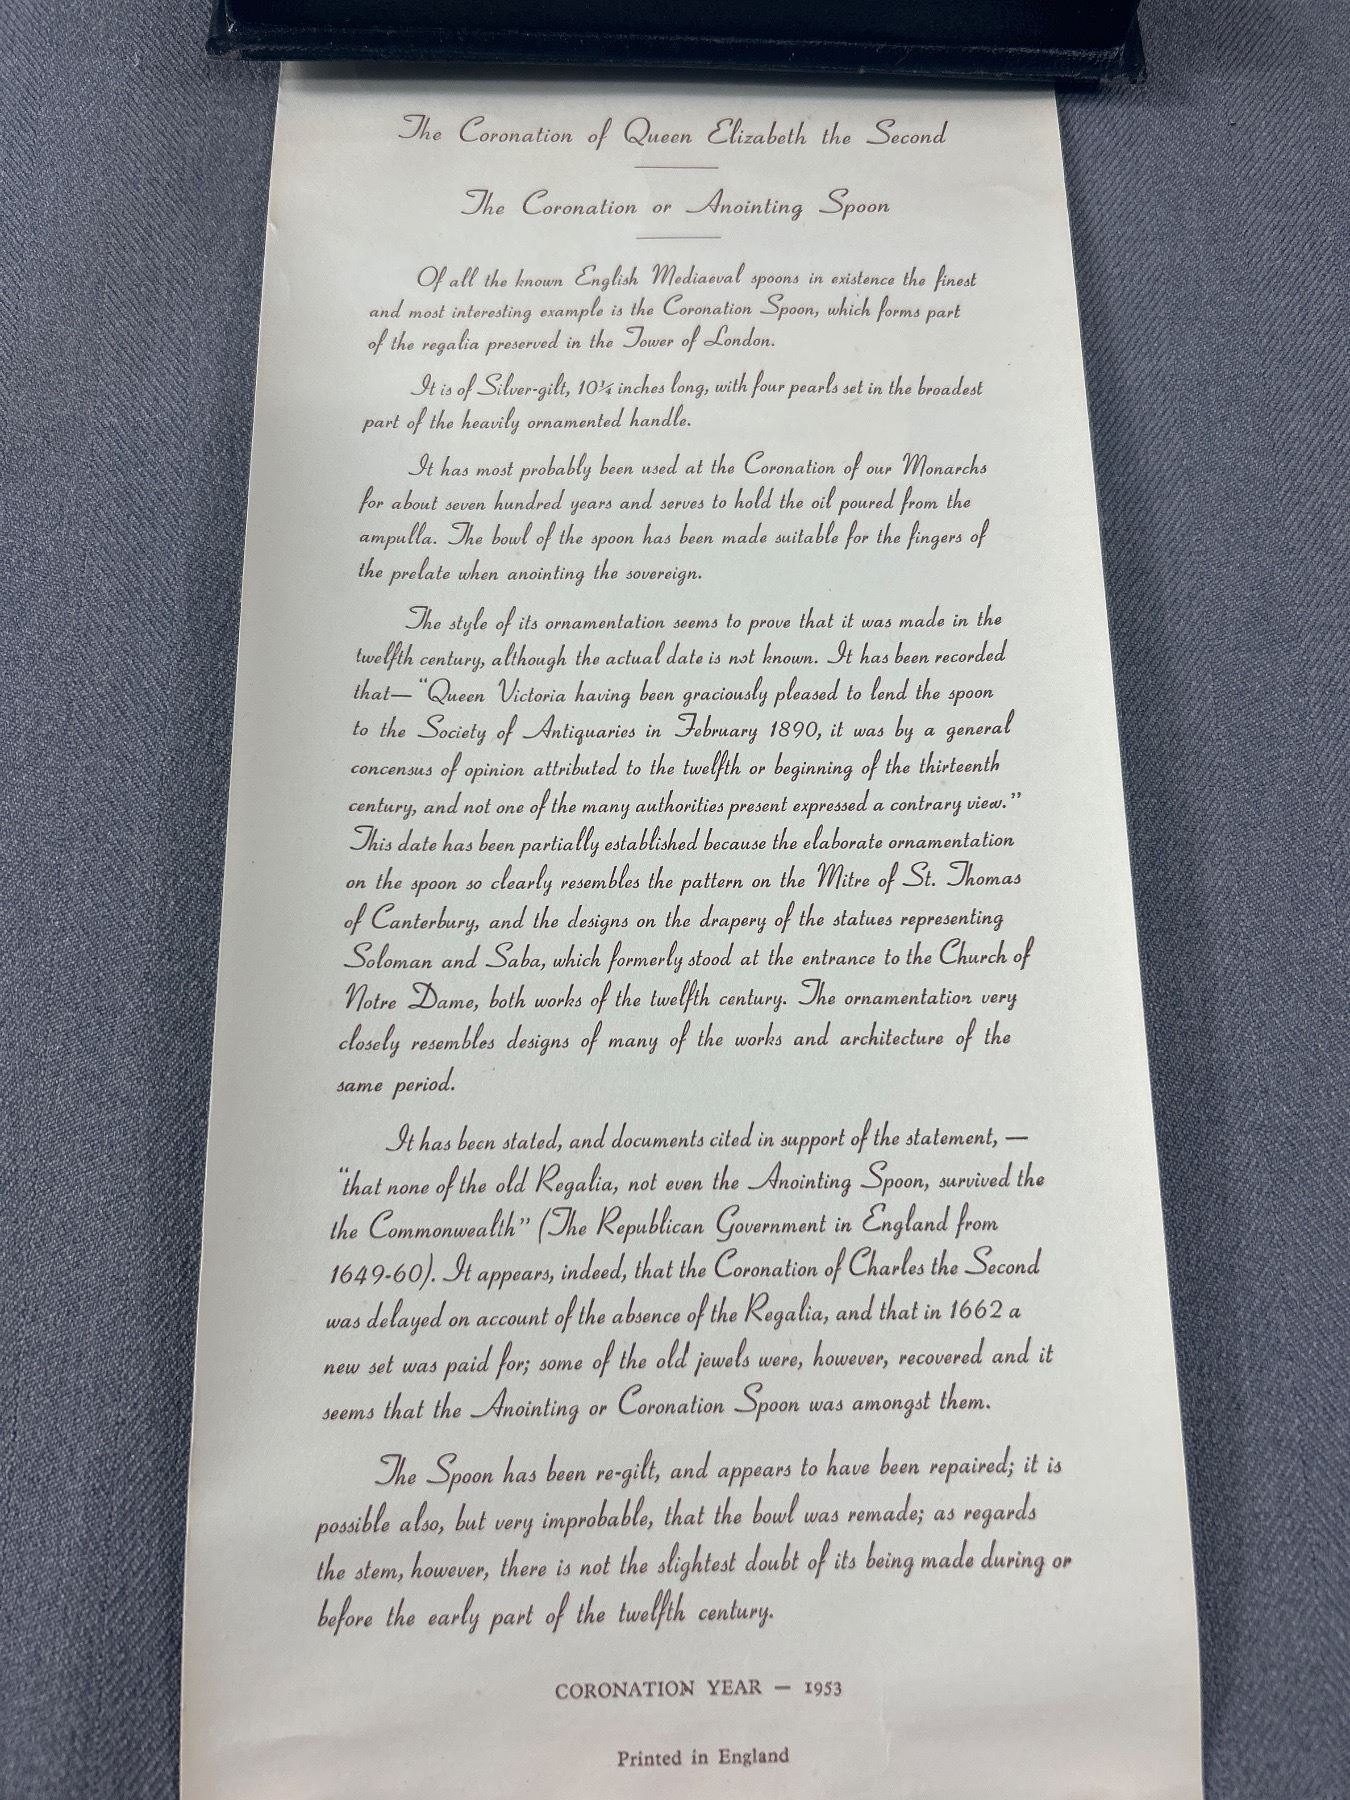 The Coronation of Queen Elizabeth the Second
The Coronation or Anointing Spoon
Of all the known English Mediaeval spoons in existence the finest
and most interesting example is the Coronation Spoon, which forms part
of the regalia preserved in the Tower of London.
It is of Silver-gilt, 10¼ inches long, with four pearls set in the broadest
part of the heavily ornamented handle.
It has most probably been used at the Coronation of our Monarchs
for about seven hundred years and serves to hold the oil poured from the
ampulla. The bowl of the spoon has been made suitable for the fingers of
the prelate when anointing the sovereign.
The style of its ornamentation seems to prove that it was made in the
twelfth century, although the actual date is not known. It has been recorded
that— “Queen Victoria having been graciously pleased to lend the spoon
to the Society of Antiquaries in February 1890, it was by a general
concensus of opinion attributed to the twelfth or beginning of the thirteenth
century, and not one of the many authorities present expressed a contrary view.”
This date has been partially established because the elaborate ornamentation
on the spoon so clearly resembles the pattern on the Mitre of St. Thomas
of Canterbury, and the designs on the drapery of the statues representing
Soloman and Saba, which formerly stood at the entrance to the Church of
Notre Dame, both works of the twelfth century. The ornamentation very
closely resembles designs of many of the works and architecture of the
same period.
It has been stated, and documents cited in support of the statement, —
“that none of the old Regalia, not even the Anointing Spoon, survived the
the Commonwealth” (The Republican Government in England from
1649-60). It appears, indeed, that the Coronation of Charles the Second
was delayed on account of the absence of the Regalia, and that in 1662 a
new set was paid for; some of the old jewels were, however, recovered and it
seems that the Anointing or Coronation Spoon was amongst them.
The Spoon has been re-gilt, and appears to have been repaired; it is
possible also, but very improbable, that the bowl was remade; as regards
the stem, however, there is not the slightest doubt of its being made during or
before the early part of the twelfth century.
CORONATION YEAR — 1953
Printed in England